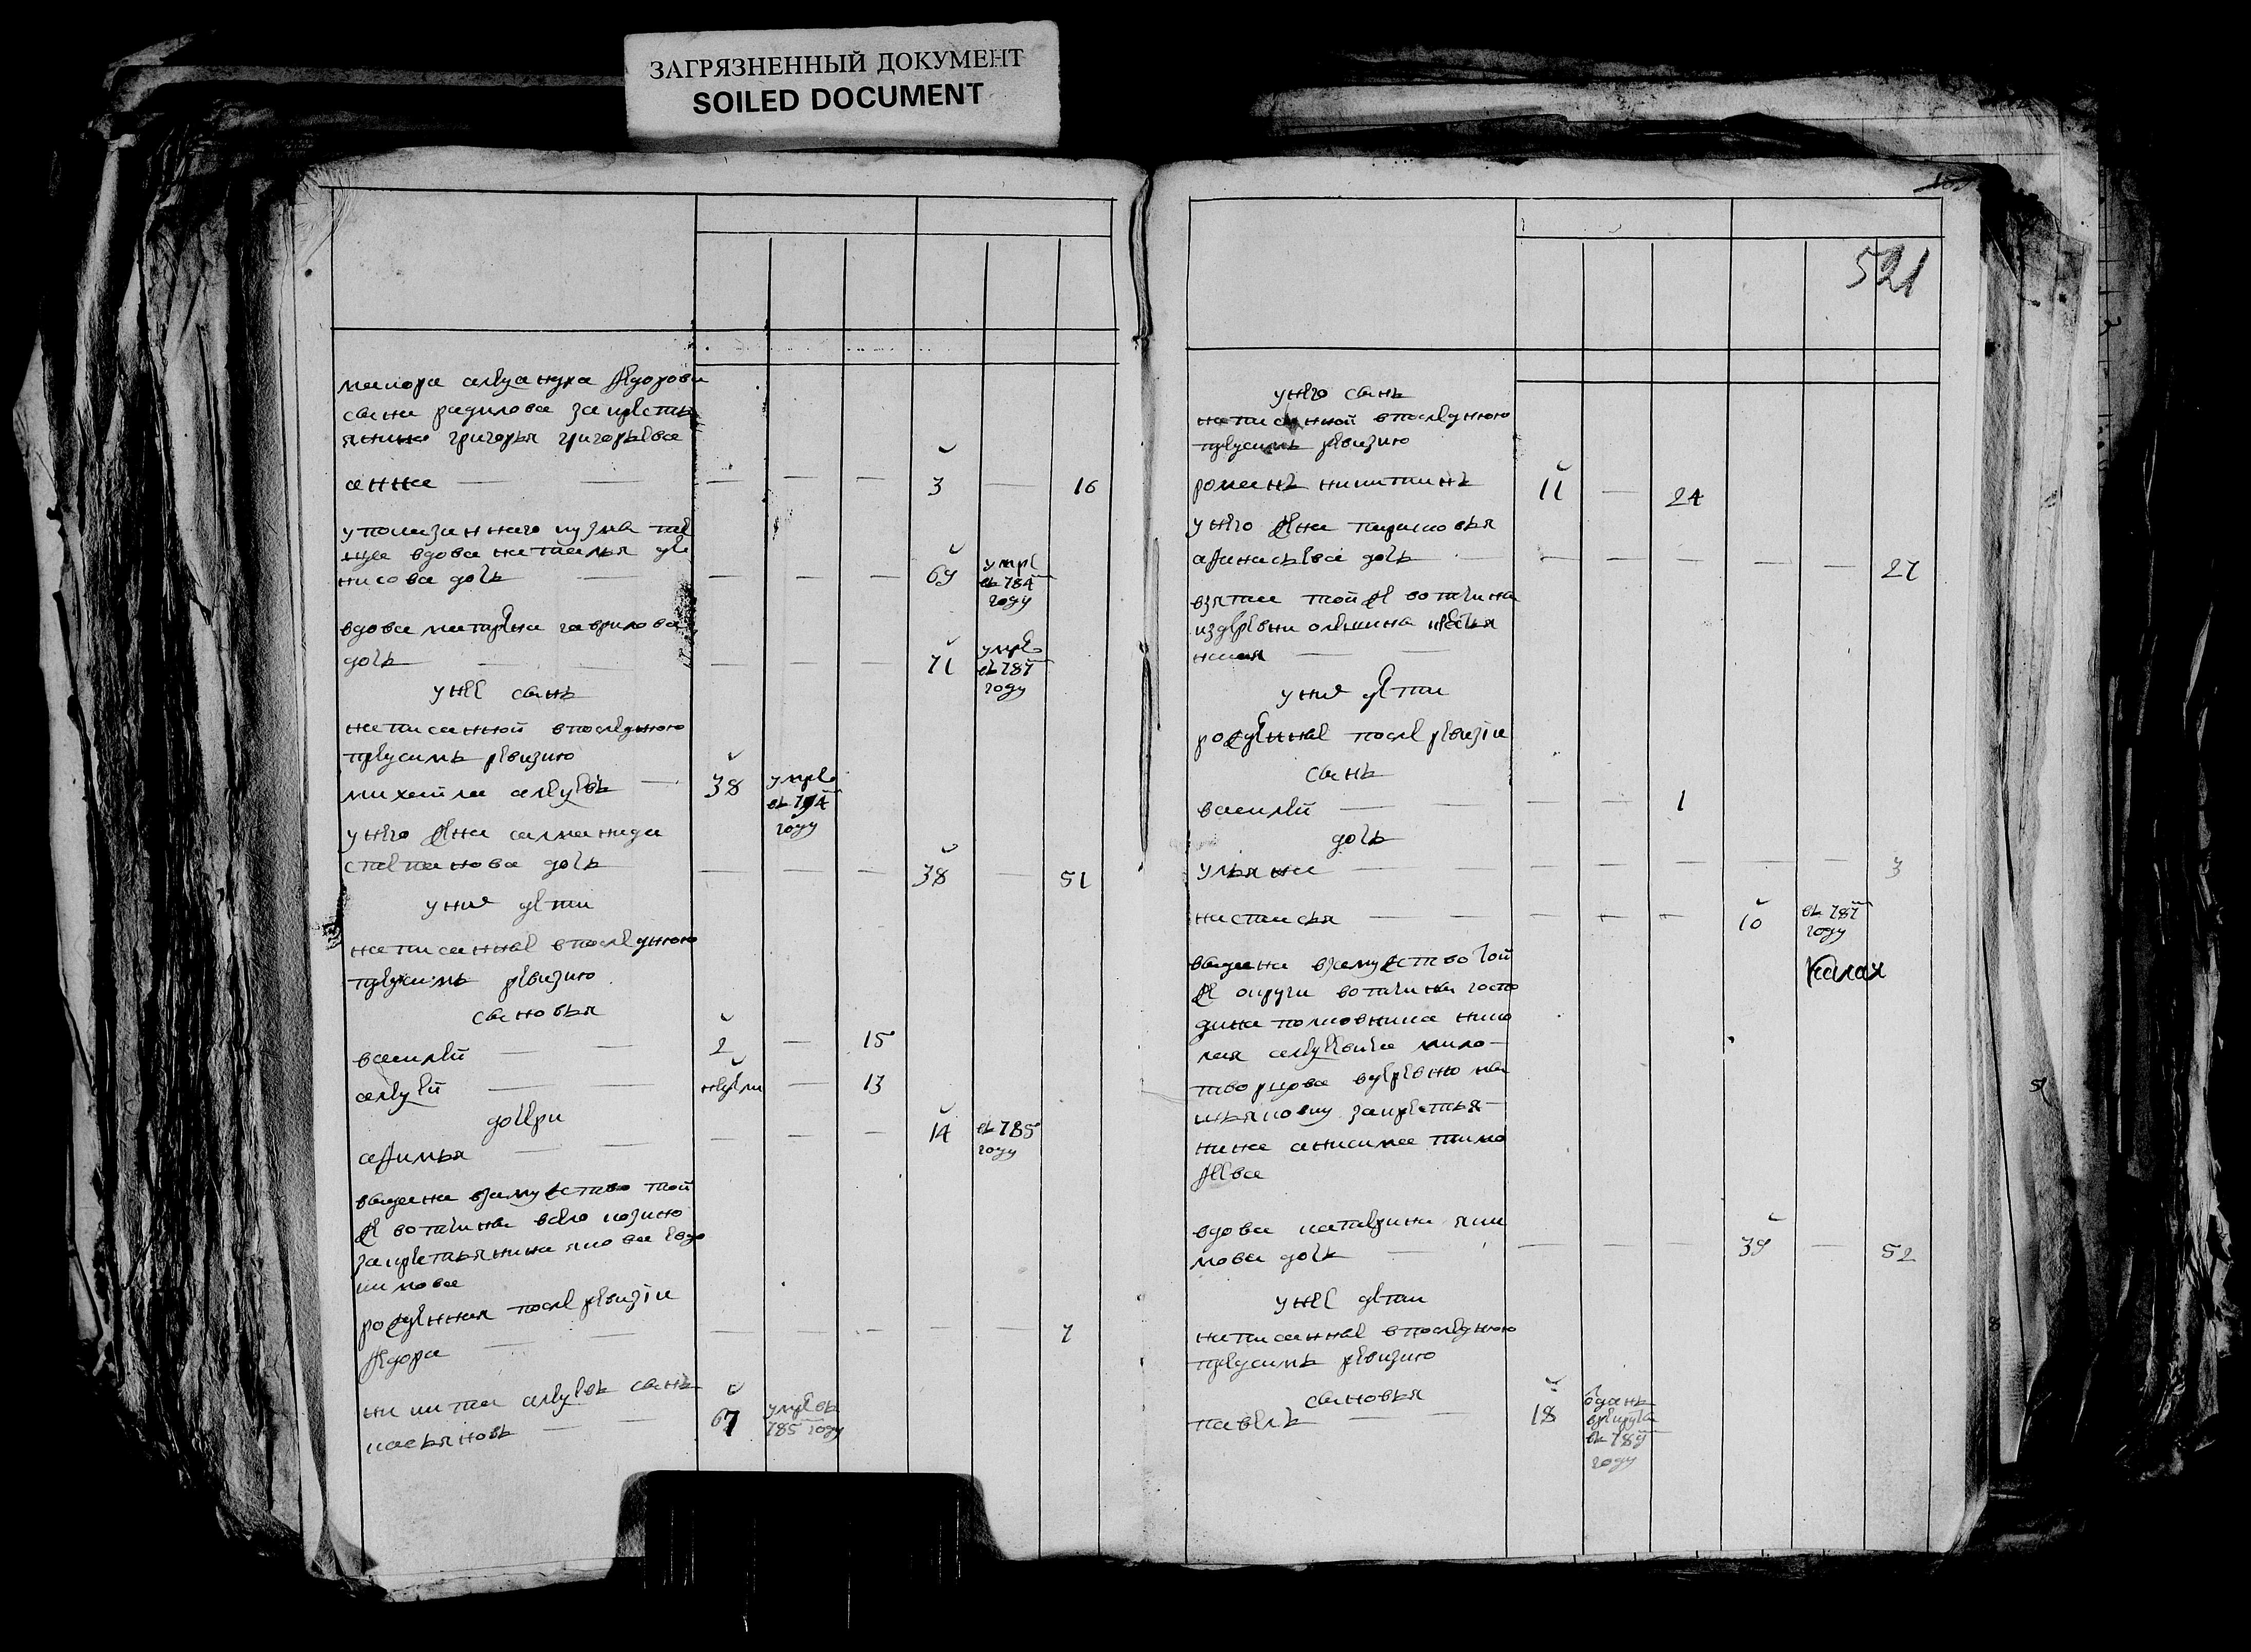 ЗАГРЯЗНЕННЫЙ ДОКУМЕНТ
SOILED DOCUMENT
маиора александра федорова
сына радилова за кресть
янина григорья григорьева
анна — — — — — 3 — 16
упомянутаго
вдова наталья де
нисова дочь — — — — 69 умре
въ 784
году
вдова матрена гаврилова
дочь — — — — — 71 умре
въ 787
году
у неё сынъ
написанной в последнюю
пред симъ ревизию
михайла алексеевъ — 38 умре
въ 794
году
у него жена саламанида
степанова дочь — — — 38 — 51
у них дети
написанные в последнюю
пред симъ ревизию
сыновья
василей — — 2 — 15
алексей — — недели — 13
дочери
афимья — — — — 14 въ 785
году
выдана в замужство той
же вотчины в село
за крестьянина якова евдо
кимова
рожденная после ревизiи
федора — — — — — — — 7
никита алексеевъ сынъ
касьяновъ — — 67 умре въ
785 году
521
у него сынъ
написанной в последнюю
пред симъ ревизию
романъ никитинъ 11 — 24
у него жена парасковья
афанасьева дочь — — — — — — 27
взятая той же вотчины
из деревни крестья
нская — —
у них дети
рожденные после ревизiи
сынъ
василей — — — — 1
дочь
ульяна — — — — — — 3
настасья — — — — — 10 въ 787
году
выдана в замужство той
же округи вотчины госпо
дина полковника нико
лая алексеевича мило
творцова в деревню
за крестья
нина анисима тимо
феева
вдова катерина яки
мова дочь — — — — 39 — 52
у неё дети
написанные в последнюю
пред симъ ревизию
сыновья
павелъ — — 18 отданъ
в рекруты
въ 787
году